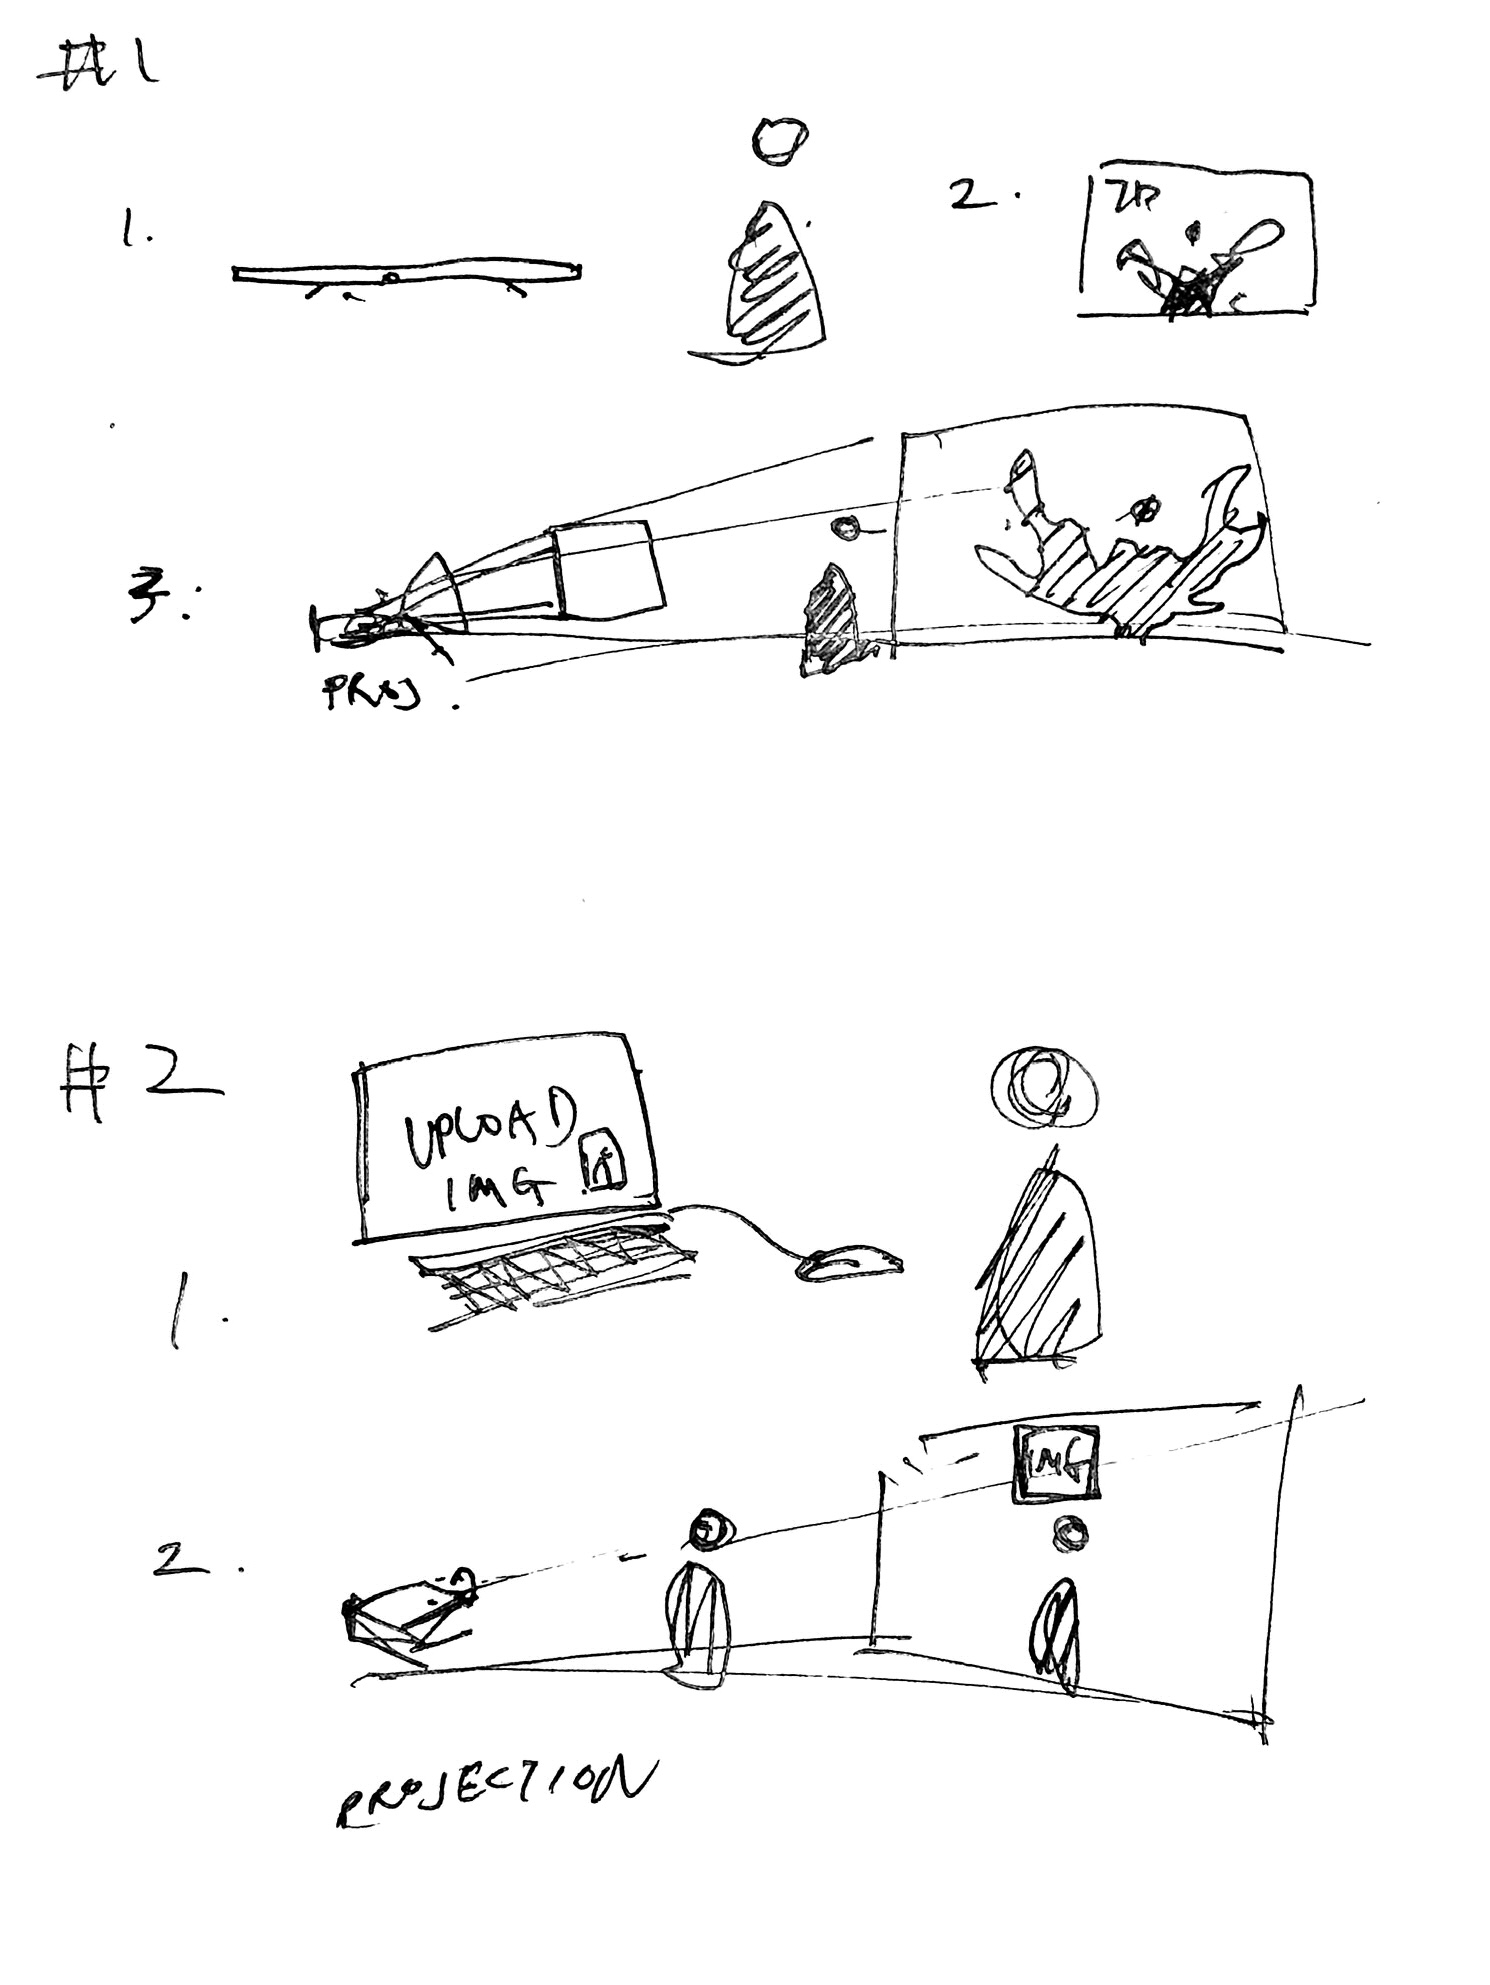 #1
1.
2.
3.
PROJ.
#2
UPLOAD
IMG
1.
IMG
2.
PROJECTION